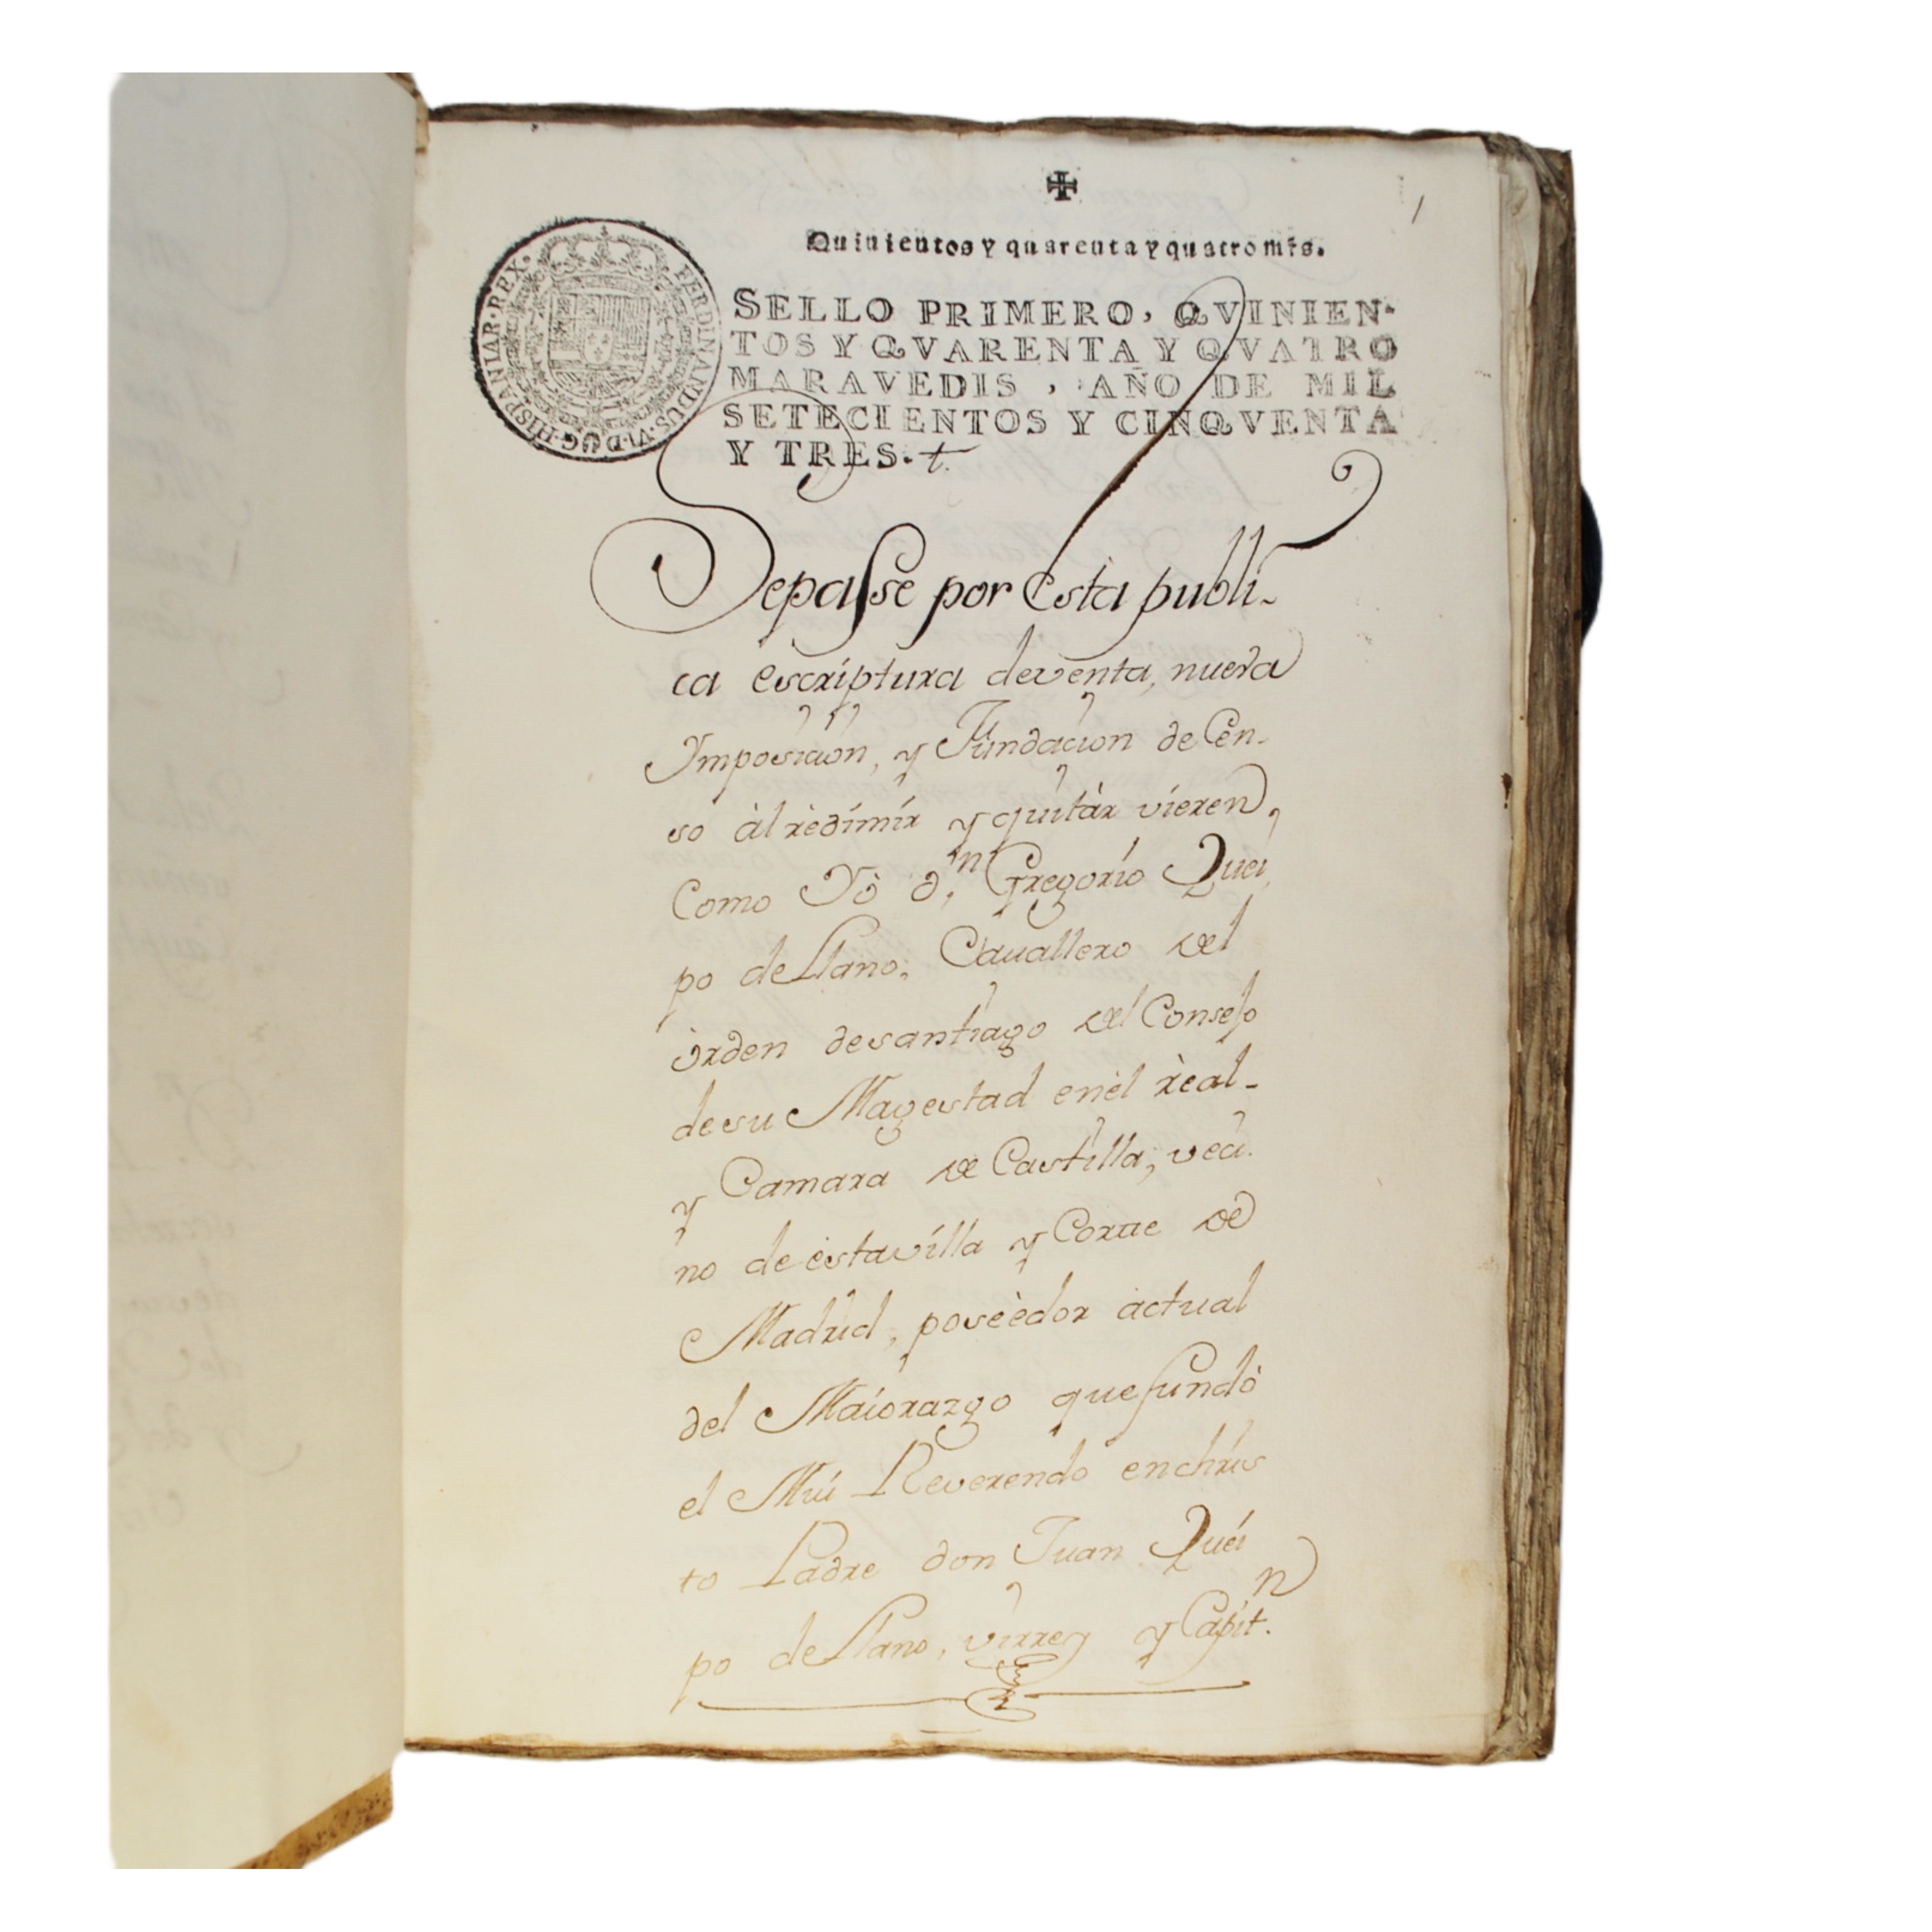 ✠
1
Quinientos y quarenta y quatro mrs.
FERDINANDUS·VI·D·G·HISPANIAR·REX·
SELLO PRIMERO, QVINIEN-
TOS Y QVARENTA Y QVATRO
MARAVEDIS, AÑO DE MIL
SETECIENTOS Y CINQVENTA
Y TRES. t.
Sepasse por esta publi-
ca escriptura de venta, nueva
Ymposición, y Fundación de Cen-
so àl rèdimír y quitàr vieren,
Como Yò d.n Gregorío Quei
po de Llano, Cauallero del
òrden de santiago del Consejo
de su Magestad en èl rèal-
y Camara de Castílla, veci-
no de èsta vílla y Corte de
Madrid, poseèdor actual
del Maíorazgo que fundò
el Mui Reverendo en chris
to Padre don Juan Quei
po de Llano, virrey y Capit.n